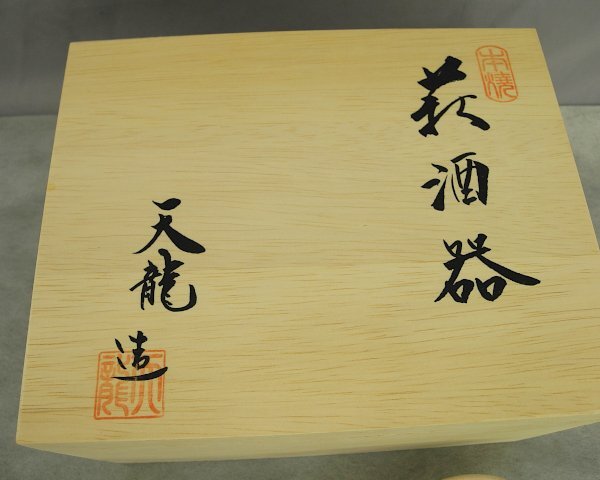 本焼
萩酒器
天龍造
天龍